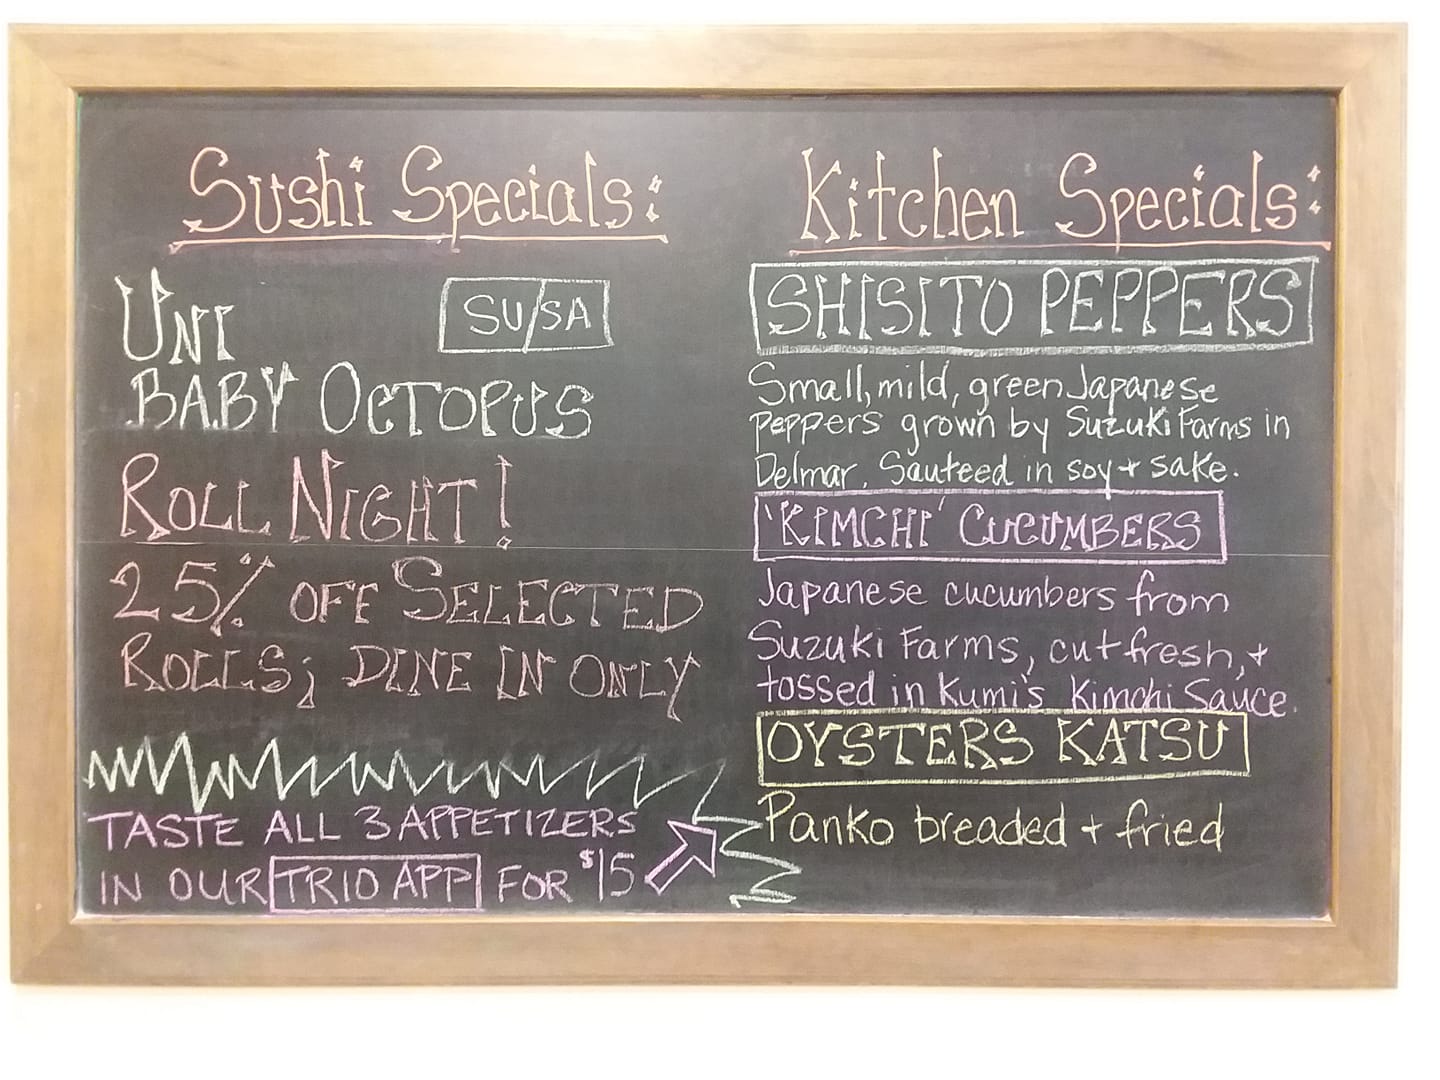 Sushi Specials:
UNI
SU/SA
BABY OCTOPUS
ROLL NIGHT!
25% OFF SELECTED
ROLLS; DINE IN ONLY
TASTE ALL 3 APPETIZERS
IN OUR TRIO APP FOR $15
Kitchen Specials:
SHISITO PEPPERS
Small, mild, green Japanese
peppers grown by Suzuki Farms in
Delmar. Sauteed in soy + sake.
'KIMCHI' CUCUMBERS
Japanese cucumbers from
Suzuki Farms, cut fresh, +
tossed in Kumi's Kimchi Sauce.
OYSTERS KATSU
Panko breaded + fried